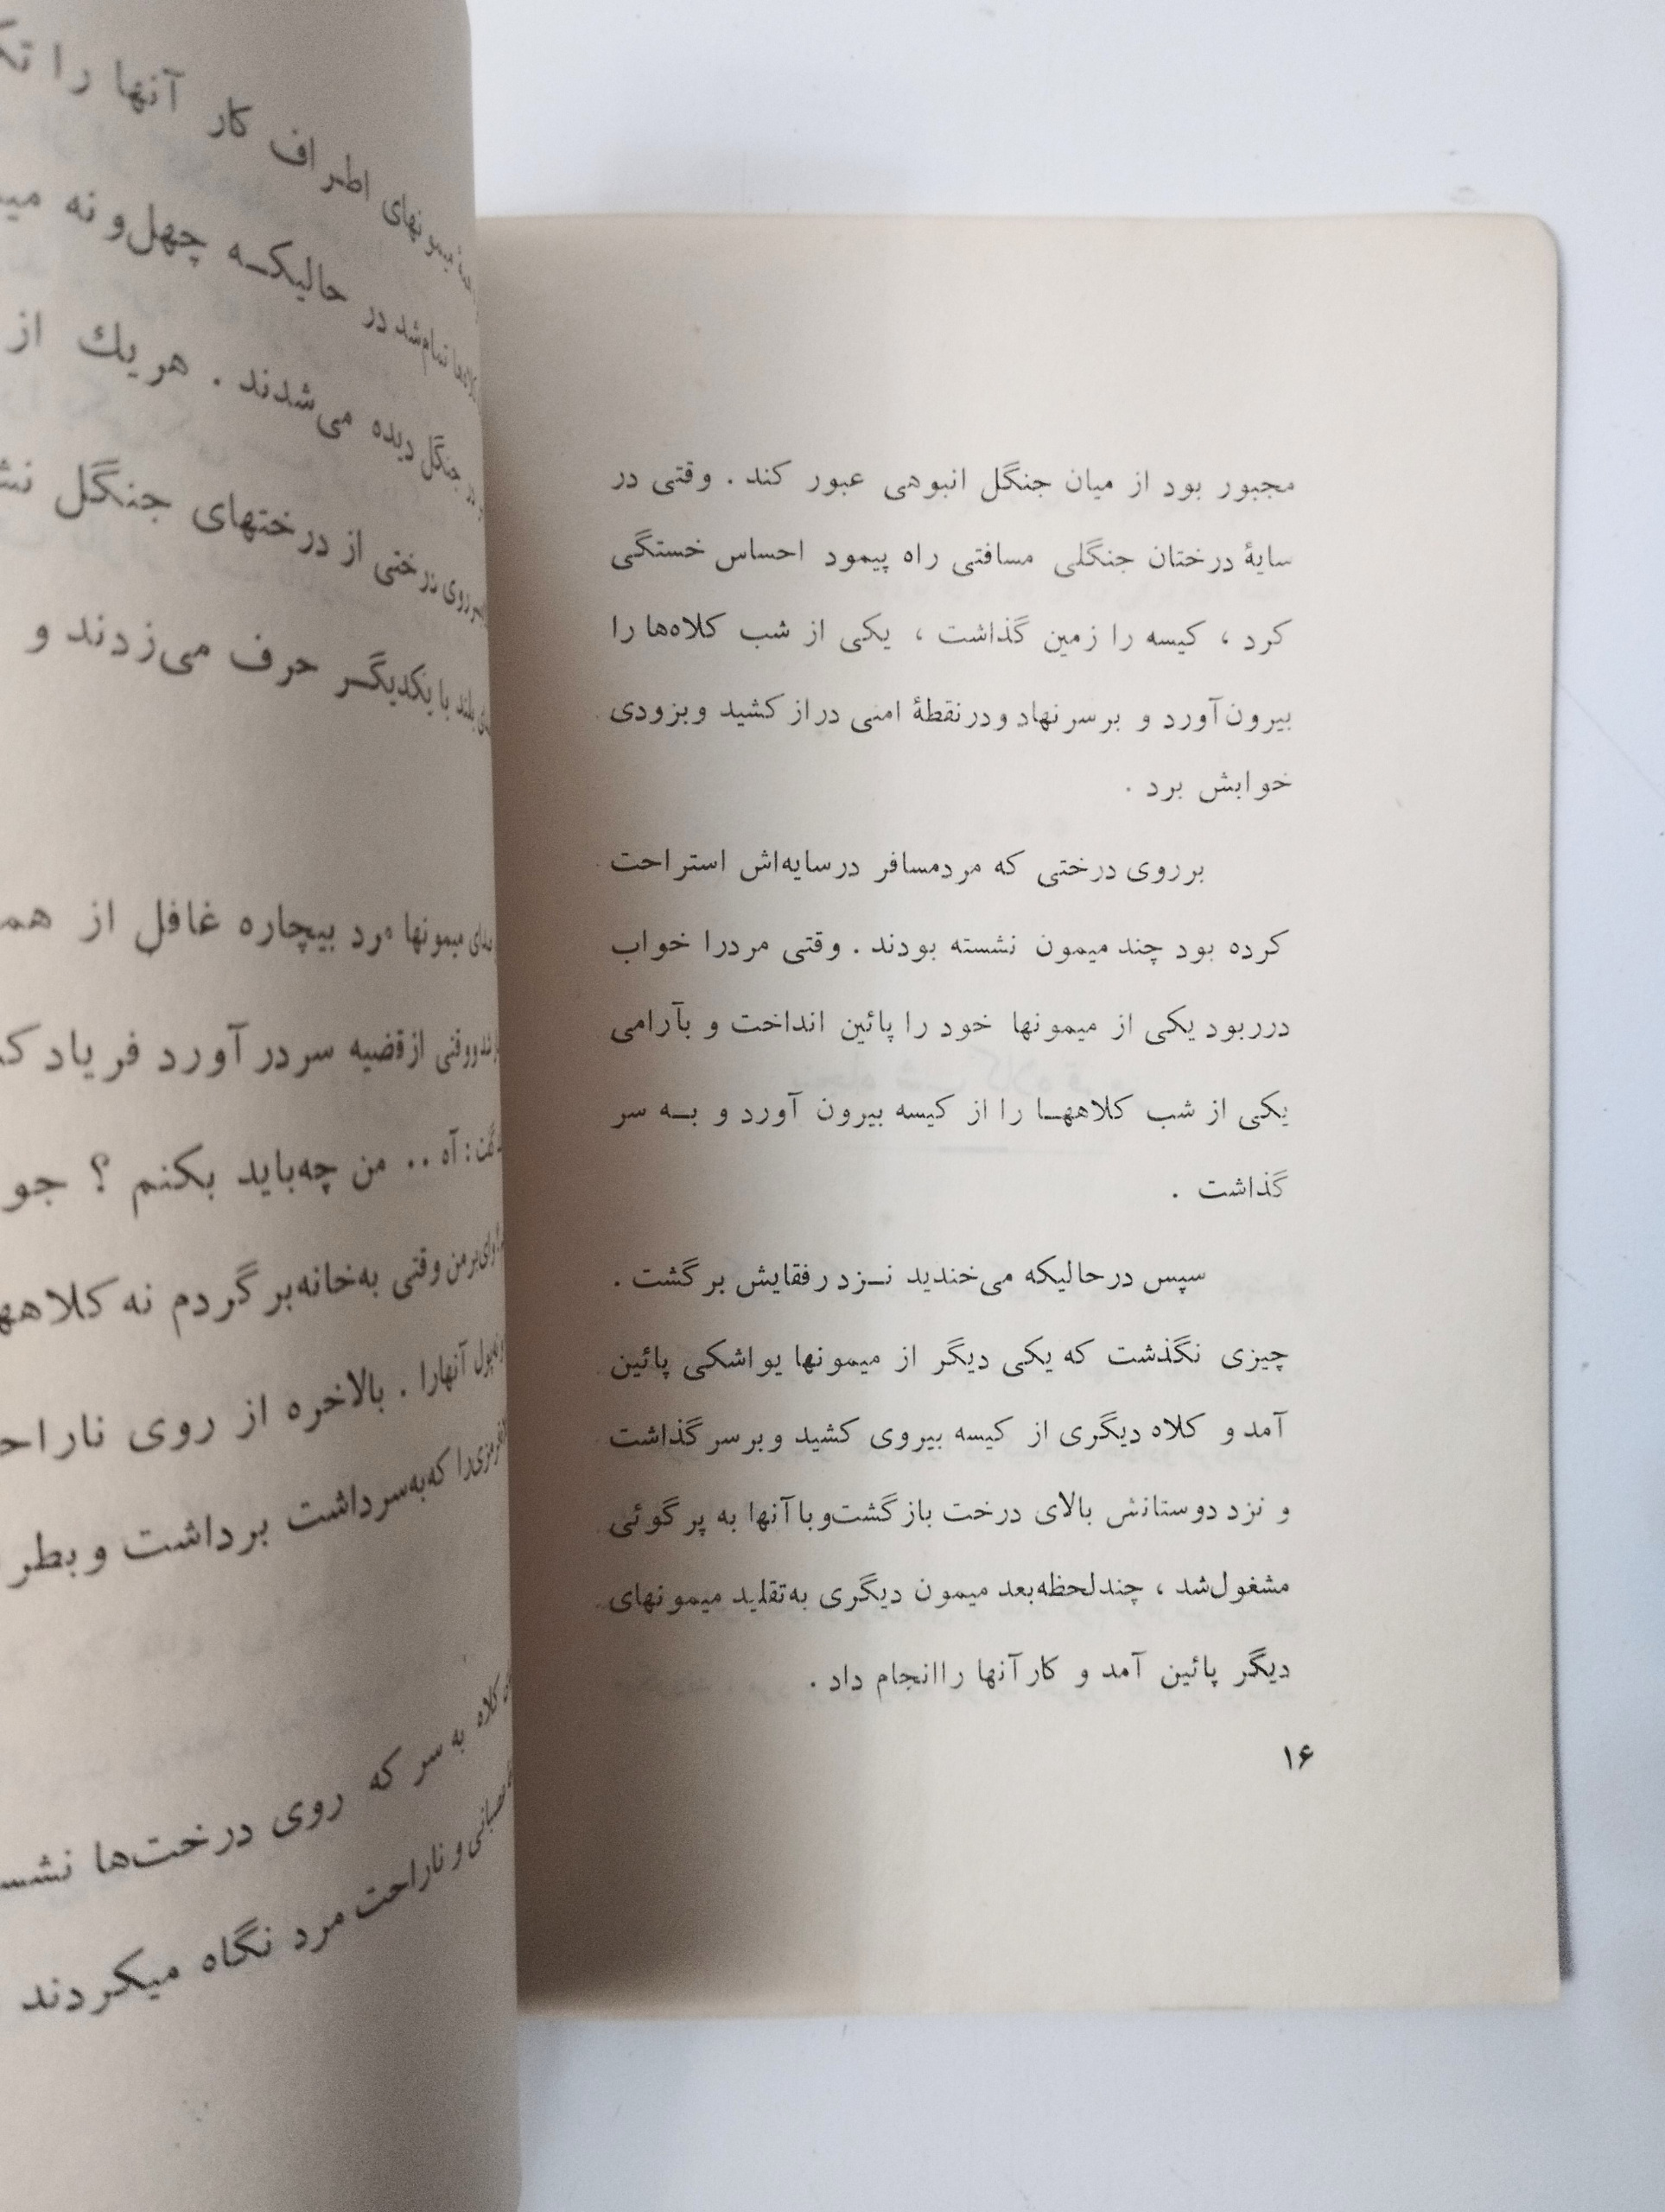 مجبور بود از میان جنگل انبوهی عبور کند . وقتی در
سایهٔ درختان جنگلی مسافتی راه پیمود احساس خستگی
کرد ، کیسه را زمین گذاشت ، یکی از شب کلاه‌ها را
بیرون‌آورد و برسرنهاد ودرنقطهٔ امنی دراز کشید وبزودی
خوابش برد .
برروی درختی که مردمسافر درسایه‌اش استراحت
کرده بود چند میمون نشسته بودند . وقتی مردرا خواب
درربود یکی از میمونها خود را پائین انداخت و بآرامی
یکی از شب کلاههـا را از کیسه بیرون آورد و بـه سر
گذاشت .
سپس درحالیکه می‌خندید نـزد رفقایش برگشت .
چیزی نگذشت که یکی دیگر از میمونها یواشکی پائین
آمد و کلاه دیگری از کیسه بیروی کشید وبرسرگذاشت
و نزد دوستانش بالای درخت بازگشت‌وباآنها به پرگوئی
مشغول‌شد ، چندلحظه‌بعد میمون دیگری به‌تقلید میمونهای
دیگر پائین آمد و کارآنها راانجام داد .
۱۶
میمونهای اطراف کار آنها را
تمام‌شد در حالیکـه چهل‌و نه
جنگل دیده می‌شدند . هریك از
روی درختی از درختهای جنگل
بلند با یکدیگـر حرف می‌زدند و
میمونها مرد بیچاره غافل از
ازقضیه سردرآورد فریاد
گفت : آه .. من چه‌باید بکنم ؟
وای‌برمن وقتی به‌خانه‌برگردم نه
آنهارا . بالاخره از روی
را که‌به‌سرداشت برداشت و
کلاه به سر که روی درخت‌ها
و ناراحت مرد نگاه میکردند